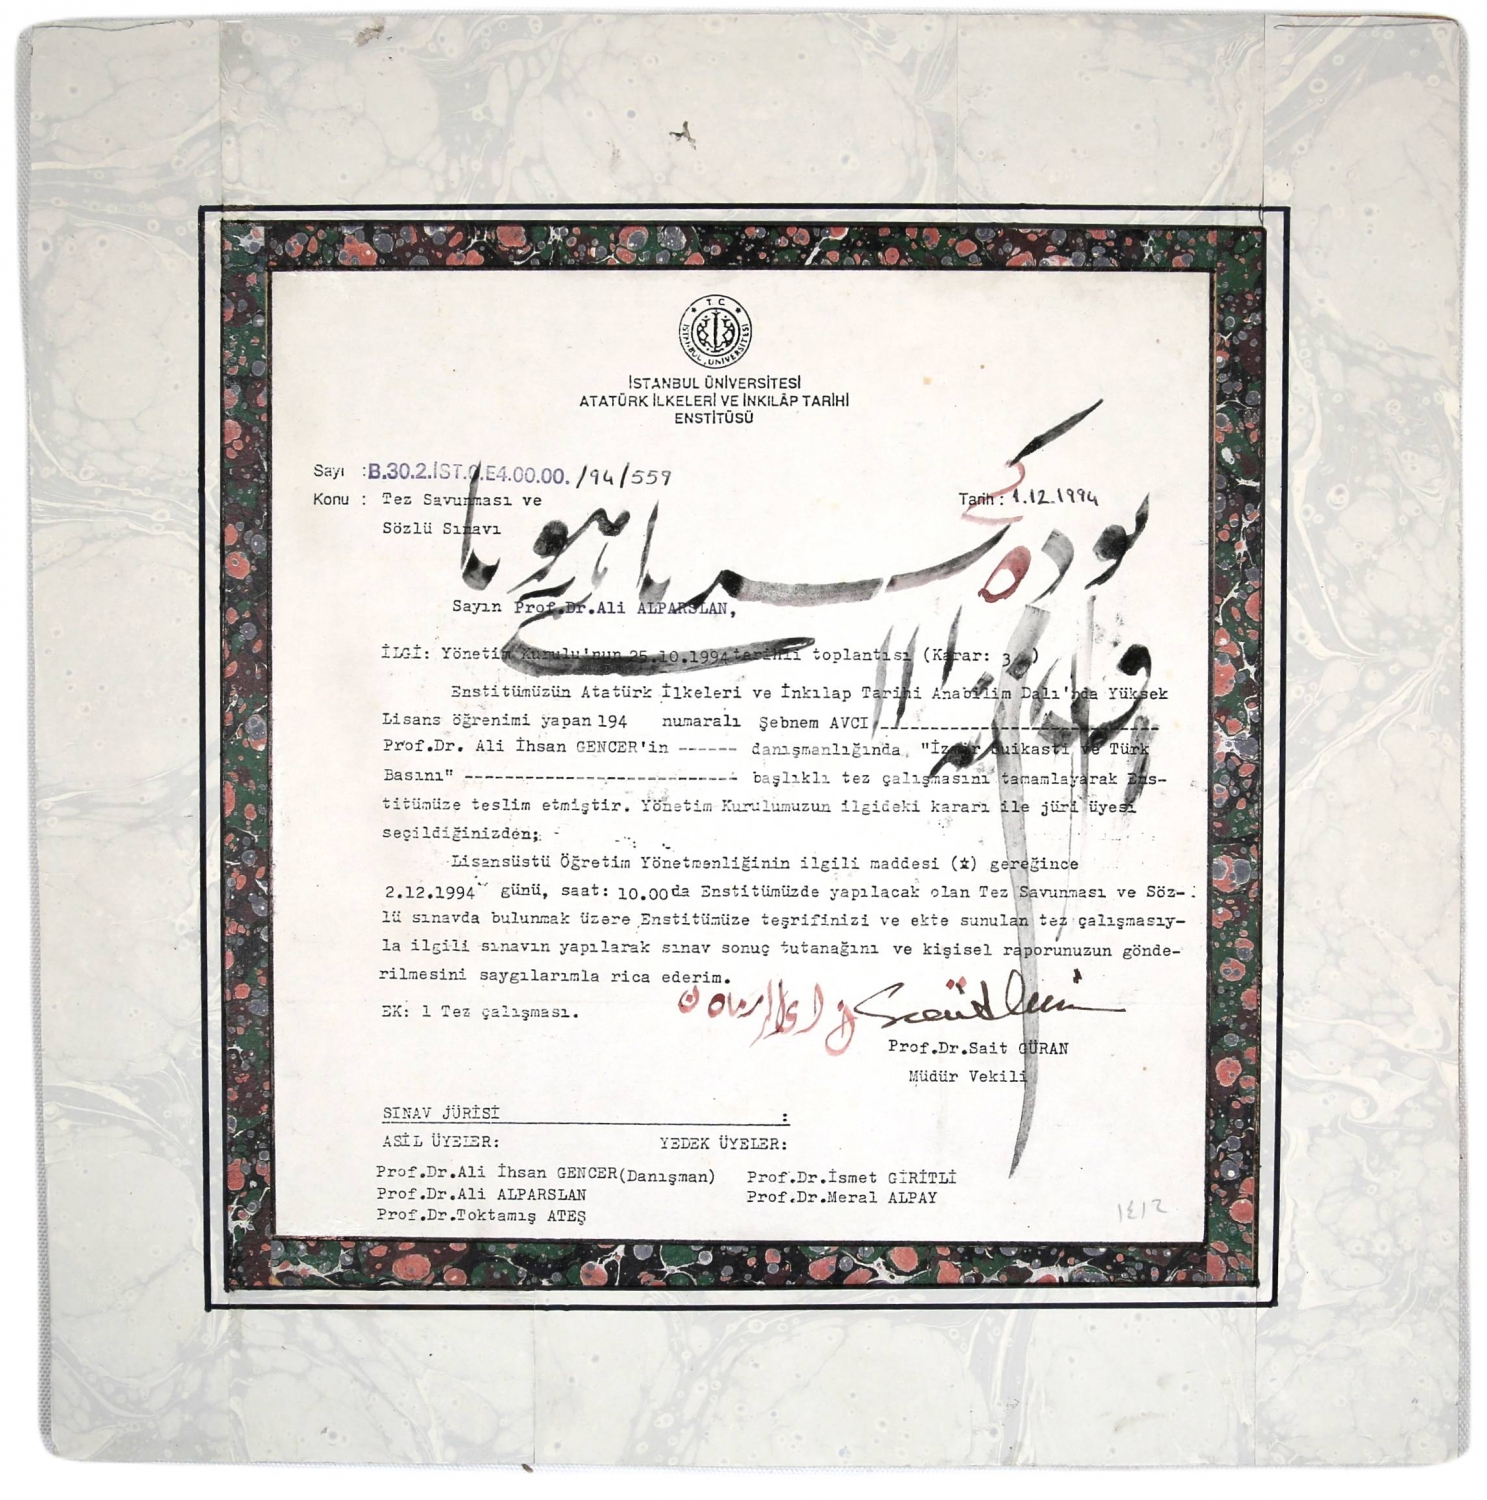 T.C.
İSTANBUL ÜNİVERSİTESİ
İSTANBUL ÜNİVERSİTESİ
ATATÜRK İLKELERİ VE İNKILÂP TARİHİ
ENSTİTÜSÜ
Sayı :B.30.2.İST.0.E4.00.00. /94/559
Konu : Tez Savunması ve Tarih: 1.12.1994
Sözlü Sınavı
Sayın Prof.Dr.Ali ALPARSLAN,
İLGİ: Yönetim Kurulu'nun 25.10.1994 tarihli toplantısı (Karar: 3 )
Enstitümüzün Atatürk İlkeleri ve İnkılap Tarihi Anabilim Dalı'nda Yüksek
Lisans öğrenimi yapan 194 numaralı Şebnem AVCI ---------------------
Prof.Dr. Ali İhsan GENCER'in ------ danışmanlığında "İzmir Suikasti ve Türk
Basını" --------------------------- başlıklı tez çalışmasını tamamlayarak Ens-
titümüze teslim etmiştir. Yönetim Kurulumuzun ilgideki kararı ile jüri üyesi
seçildiğinizden;
Lisansüstü Öğretim Yönetmenliğinin ilgili maddesi (*) gereğince
2.12.1994 günü, saat: 10.00da Enstitümüzde yapılacak olan Tez Savunması ve Söz-
lü sınavda bulunmak üzere Enstitümüze teşrifinizi ve ekte sunulan tez çalışmasıy-
la ilgili sınavın yapılarak sınav sonuç tutanağını ve kişisel raporunuzun gönde-
rilmesini saygılarımla rica ederim.
EK: 1 Tez çalışması.
Prof.Dr.Sait GÜRAN
Müdür Vekili
SINAV JÜRİSİ :
ASİL ÜYELER: YEDEK ÜYELER:
Prof.Dr.Ali İhsan GENCER(Danışman) Prof.Dr.İsmet GİRİTLİ
Prof.Dr.Ali ALPARSLAN Prof.Dr.Meral ALPAY
Prof.Dr.Toktamış ATEŞ